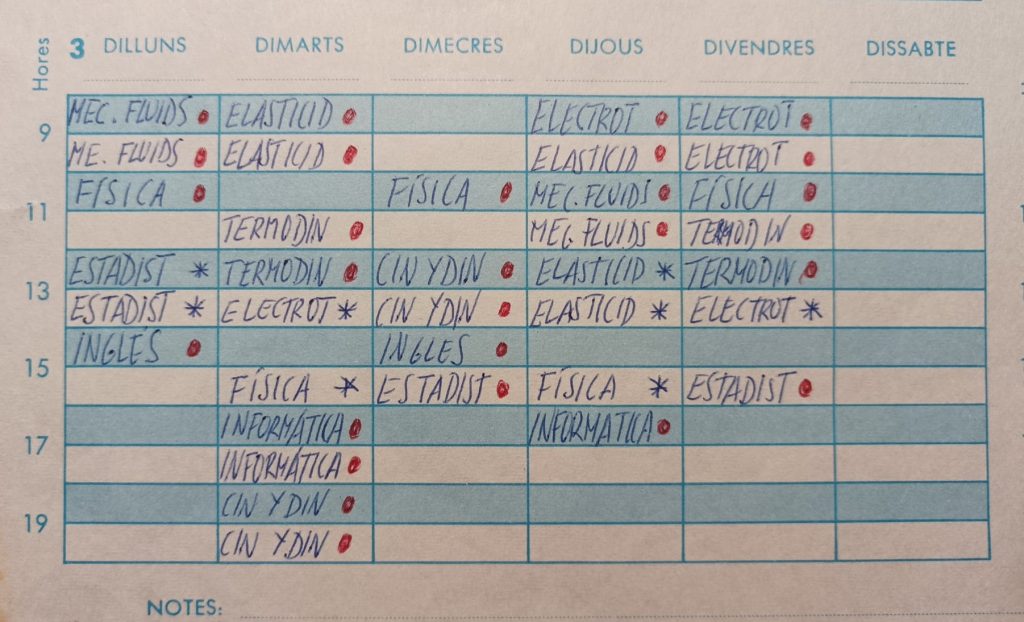 Hores 3 DILLUNS DIMARTS DIMECRES DIJOUS DIVENDRES DISSABTE
MEC. FLUIDS ELASTICID ELECTROT ELECTROT
9
ME. FLUIDS ELASTICID ELASTICID ELECTROT
FÍSICA FÍSICA MEC. FLUIDS FÍSICA
11
TERMODIN MEC. FLUIDS TERMODIN
ESTADIST * TERMODIN CIN Y DIN ELASTICID * TERMODIN
13
ESTADIST * ELECTROT * CIN Y DIN ELASTICID * ELECTROT *
INGLÉS INGLES
15
FÍSICA * ESTADIST FÍSICA * ESTADIST
INFORMÁTICA INFORMATICA
17
INFORMÁTICA
CIN Y DIN
19
CIN Y DIN
NOTES: